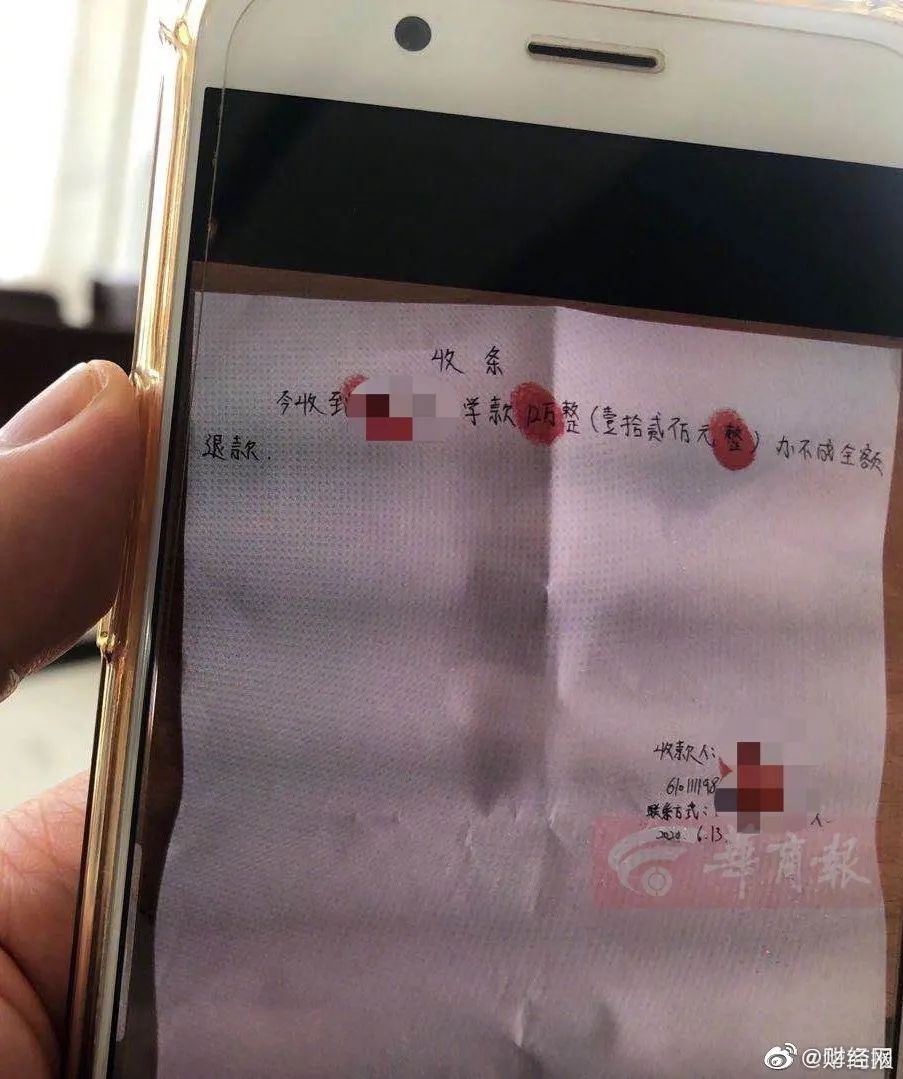 收条
今收到 学款12万整(壹拾贰佰元整)办不成全额
退款.
收款人:
610111198
联系方式:
人
2020.6.13.
華商報
@财经网